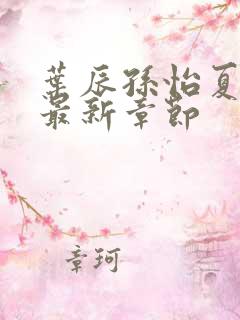 葉辰孫怡夏
最新章節
章珂